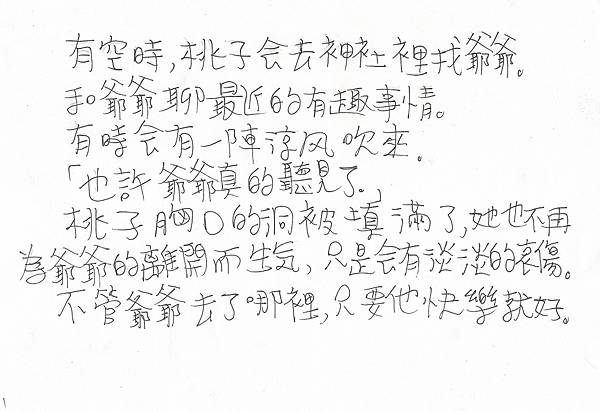 有空時,桃子会去神社裡找爺爺。
和爺爺聊最近的有趣事情。
有時会有一陣涼风吹來.
「也許爺爺真的聽見了。」
桃子胸口的洞被填滿了,她也不再
為爺爺的離開而生気,只是会有淡淡的哀傷。
不管爺爺去了哪裡,只要他快樂就好。